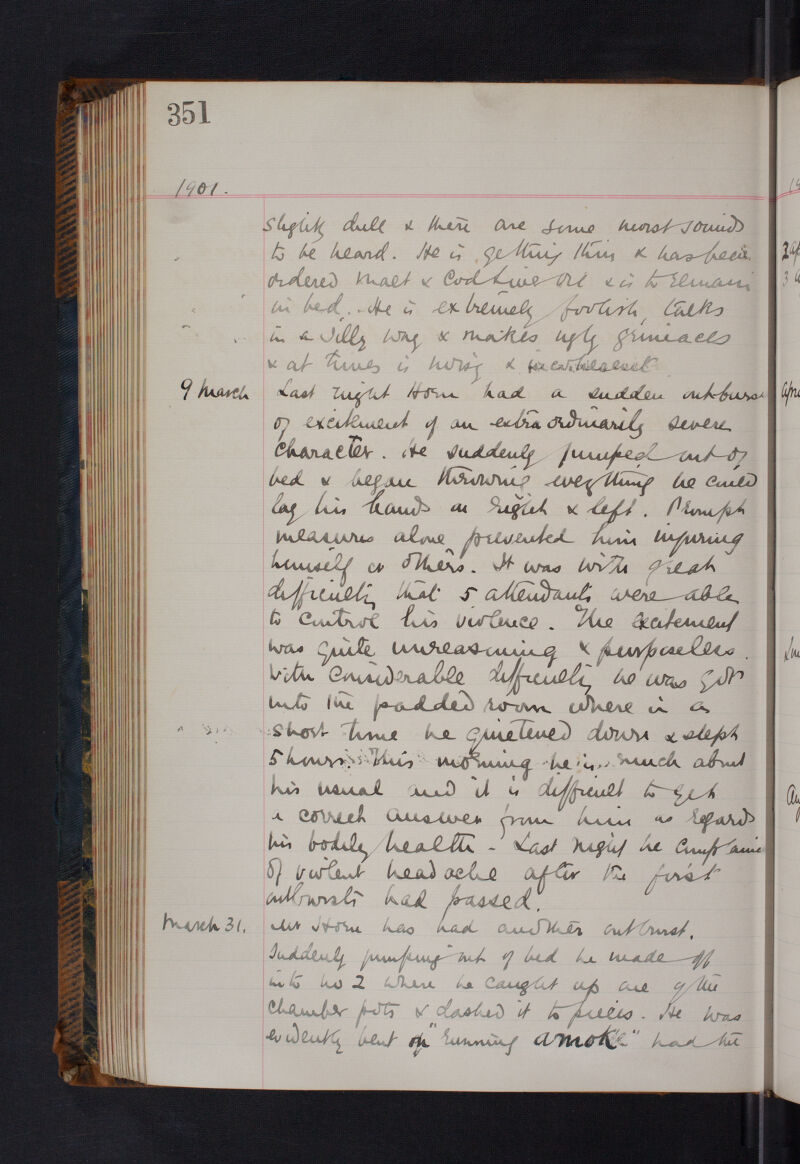 351
1901.
slightly dull & there are some moist sounds
to be heard. He is getting thin & has been
ordered Malt & Cod Liver Oil & is to remain
in bed. He is extremely foolish, talks
in a silly way & makes ugly grimaces
& at times is noisy &
9 March Last night Horn had a sudden outburst
of excitement of an extraordinarily severe
character. He suddenly jumped out of
bed & began throwing everything he could
lay his hands on right & left. Prompt
measures alone prevented him injuring
himself or others. It was with great
difficulty that 5 attendants were able
to control his violence. The excitement
was quite unreasoning & purposeless.
With considerable difficulty he was got
into the padded room where in a
short time he quietened down & slept
5 hours. This morning he is much about
his usual and it is difficult to get
a correct answer from him as regards
his bodily health - Last night he complained
of violent headache after the first
outbursts had passed.
March 31. Mr Horn has had another outburst.
Suddenly jumping out of bed he made off
into no 2 where he caught up one of the
chamber pots & dashed it to pieces. He was
evidently bent on "running amok" had the